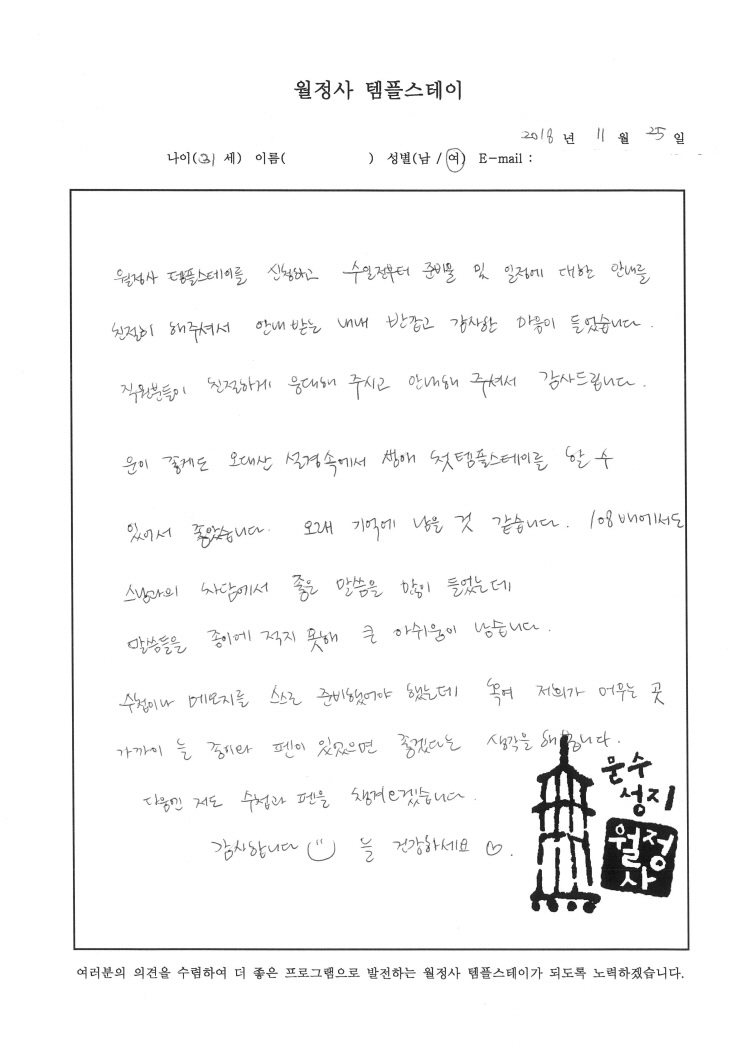 월정사 템플스테이
2018 년 11 월 25 일
나이(31 세) 이름( ) 성별(남 / 여) E-mail :
월정사 템플스테이를 신청하고 수일전부터 준비물 및 일정에 대한 안내를
친절히 해주셔서 안내받는 내내 반갑고 감사한 마음이 들었습니다.
직원분들이 친절하게 응대해 주시고 안내해 주셔서 감사드립니다.
운이 좋게도 오대산 설경속에서 생애 첫템플스테이를 할 수
있어서 좋았습니다. 오래 기억에 남을 것 같습니다. 108배에서도
스님과의 차담에서 좋은 말씀을 많이 들었는데
말씀들을 종이에 적지 못해 큰 아쉬움이 남습니다.
수첩이나 메모지를 스스로 준비했어야 했는데 혹여 저희가 머무는 곳
가까이 늘 종이와 펜이 있었으면 좋겠다는 생각을 해봅니다.
다음엔 저도 수첩과 펜을 챙겨오겠습니다.
감사합니다 늘 건강하세요 ♡.
문수
성지
월정
사
여러분의 의견을 수렴하여 더 좋은 프로그램으로 발전하는 월정사 템플스테이가 되도록 노력하겠습니다.